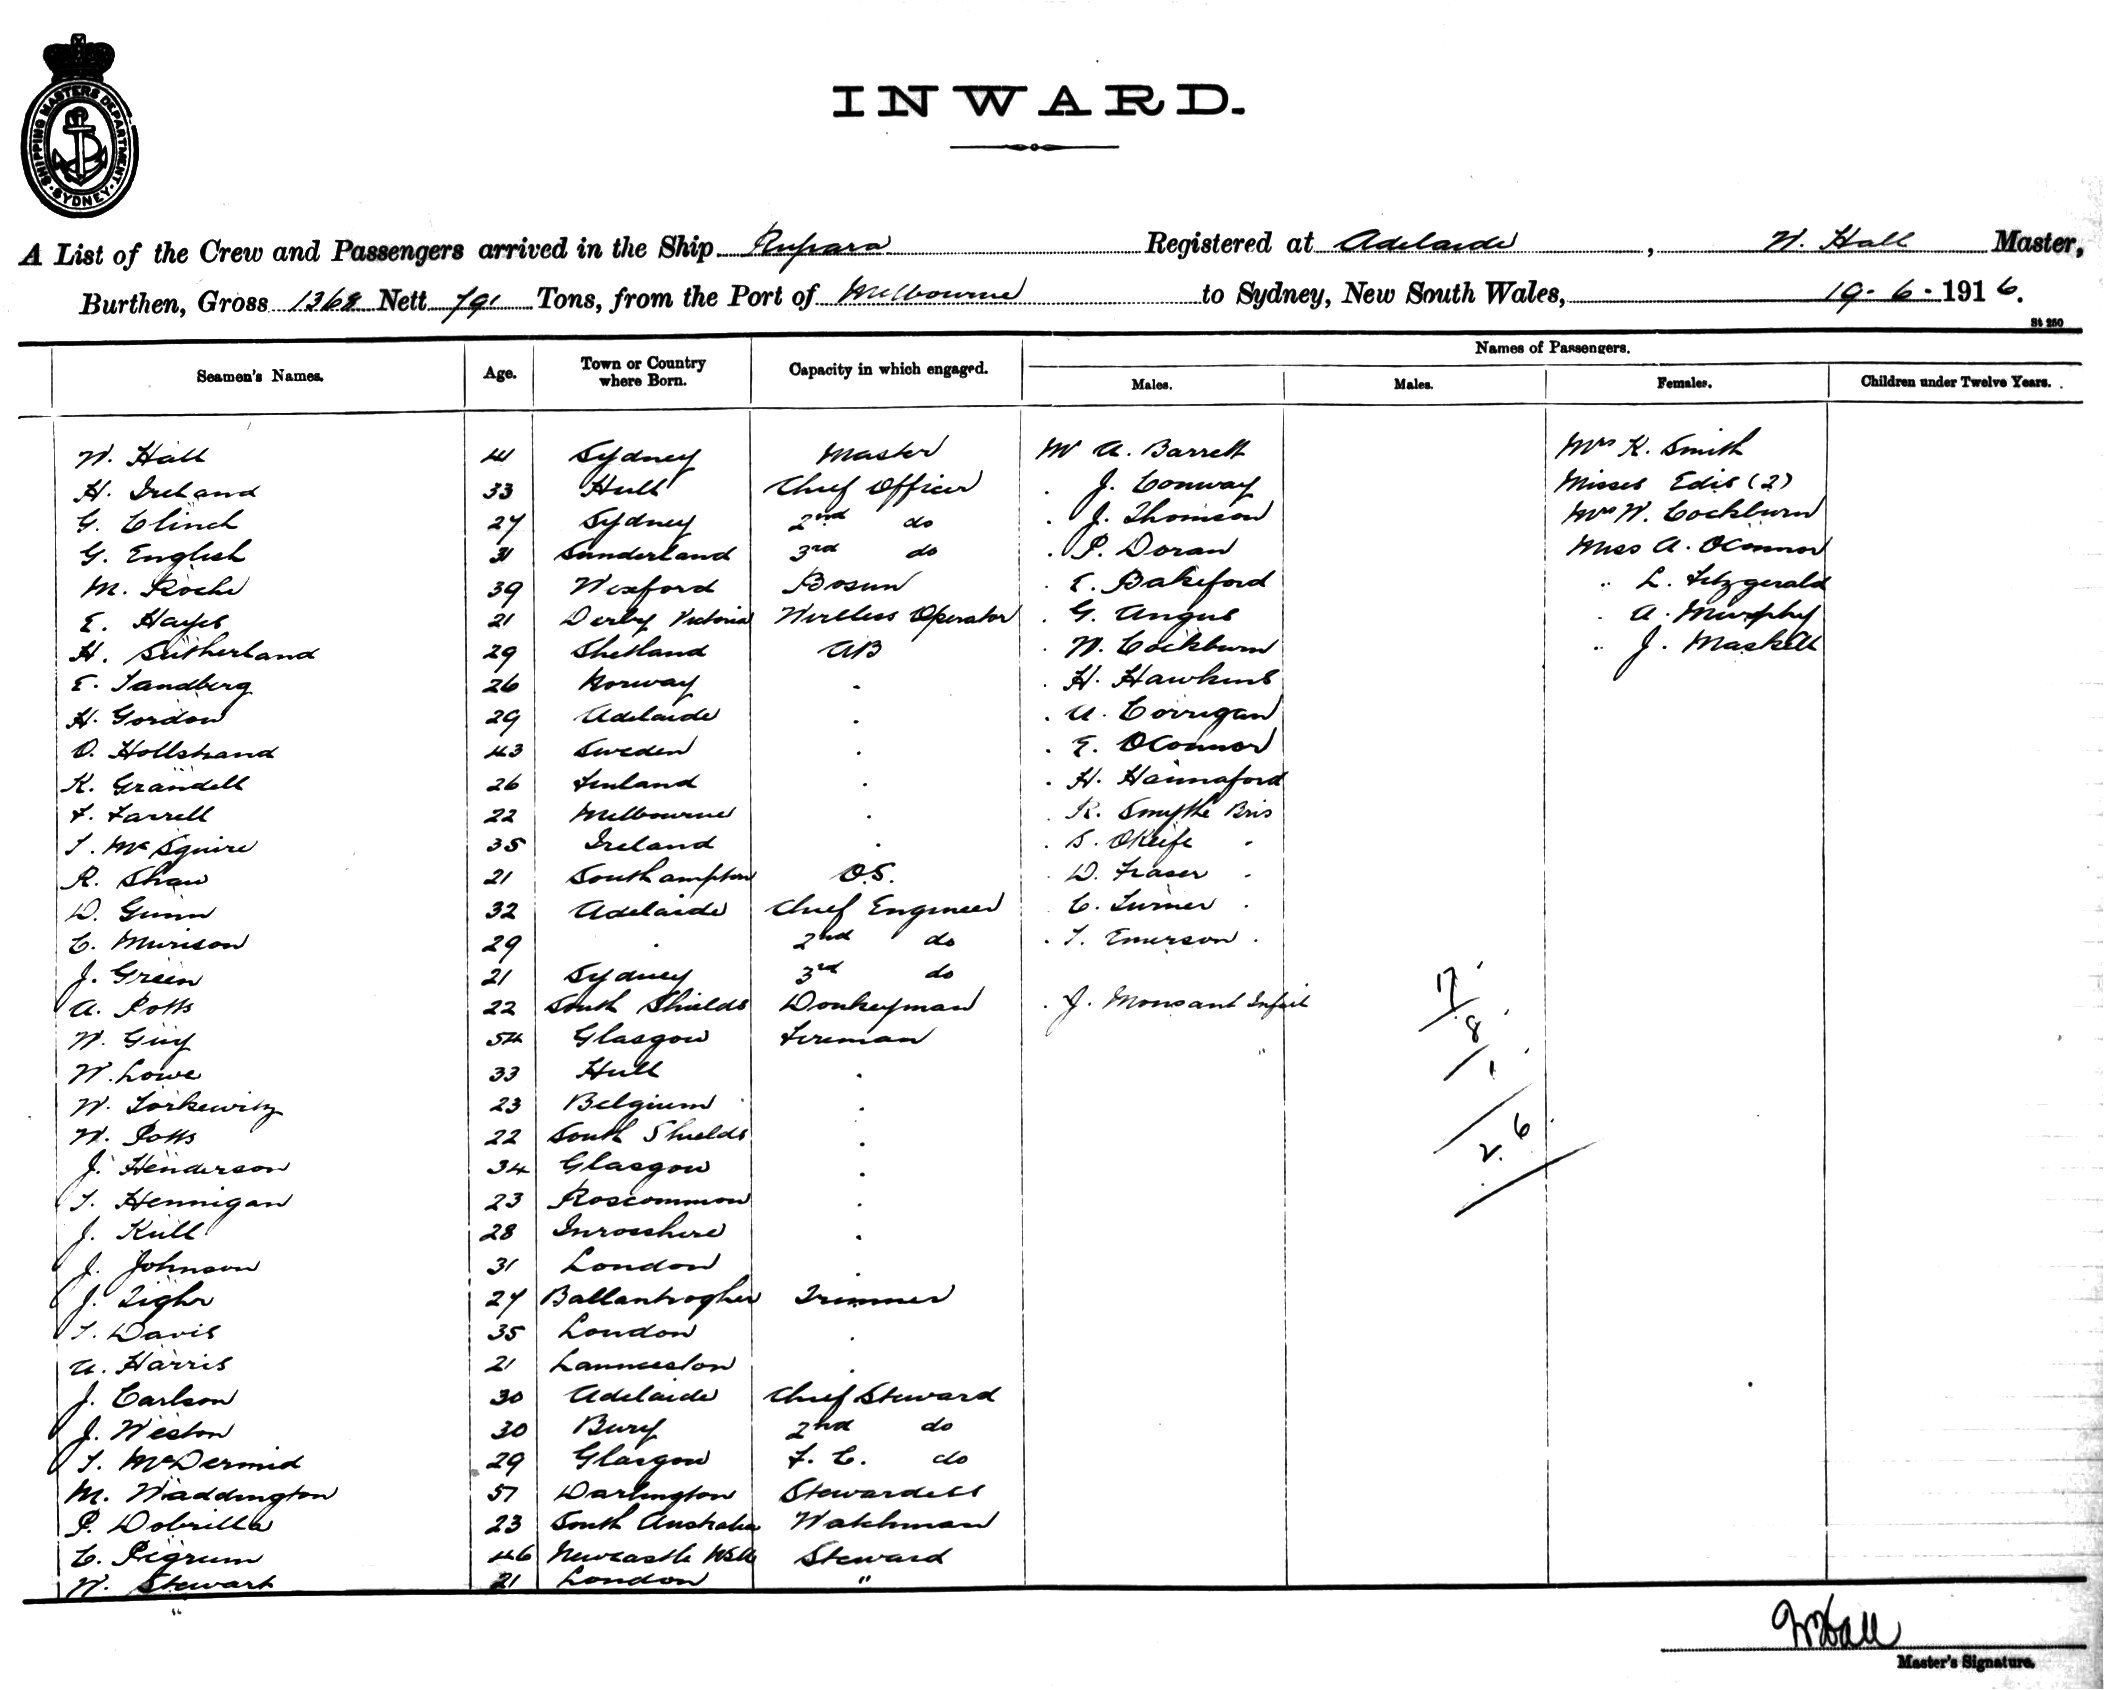 SHIPPING MASTERS DEPARTMENT. SYDNEY
INWARD.
A List of the Crew and Passengers arrived in the Ship Rupara Registered at Adelaide, W. Hall Master,
Burthen, Gross 1368 Nett 791 Tons, from the Port of Melbourne to Sydney, New South Wales, 19-6-1916.
St 250
Names of Passengers.
Seamen's Names. Age. Town or Country where Born. Capacity in which engaged. Males. Males. Females. Children under Twelve Years.
W. Hall 41 Sydney Master Mr A. Barrett Mrs K. Smith
H. Ireland 33 Hull Chief Officer . J. Conway Misses Edis (2)
G. Clinch 27 Sydney 2nd do . J. Thomson Mrs W. Cockburn
G. English 31 Sunderland 3rd do . P. Doran Miss A. OConnor
M. Roche 39 Wexford Bosun . E. Bakeford .. L. Fitzgerald
E. Hayes 21 Derby Victoria Wireless Operator . G. Angus . A. Murphy
H. Sutherland 29 Shetland AB . W. Cockburn .. J. Maskell
E. Sandberg 26 Norway . . H. Hawkins
H. Gordon 29 Adelaide . . A. Corrigan
O. Hollstrand 43 Sweden . . E. OConnor
K. Grandell 26 Finland . . H. Hannaford
F. Farrell 22 Melbourne . . R. Smythe Bris
T. McSquire 35 Ireland . . S. OKeefe .
R. Shaw 21 Southampton O.S. . D. Fraser .
D. Gunn 32 Adelaide Chief Engineer . C. Turner .
C. Murison 29 . 2nd do . T. Emerson .
J. Green 21 Sydney 3rd do
A. Potts 22 South Shields Donkeyman . J. Monsant 17
W. Guy 54 Glasgow Fireman 8
W. Lowe 33 Hull . 1
W. Torkewitz 23 Belgium .
W. Potts 22 South Shields . 26
J. Henderson 34 Glasgow .
T. Hennigan 23 Roscommon .
J. Kull 28 .
J. Johnson 31 London .
J. Tighe 27 Trimmer
T. Davis 35 London .
A. Harris 21 Launceston .
J. Carlson 30 Adelaide Chief Steward
J. Weston 30 Bury 2nd do
T. McDermid 29 Glasgow F. C. do
M. Waddington 57 Darlington Stewardess
P. Dobrilla 23 South Australia Watchman
C. Pegrum 46 Newcastle NSW Steward
W. Stewart 21 London "
W Hall
Master's Signature.